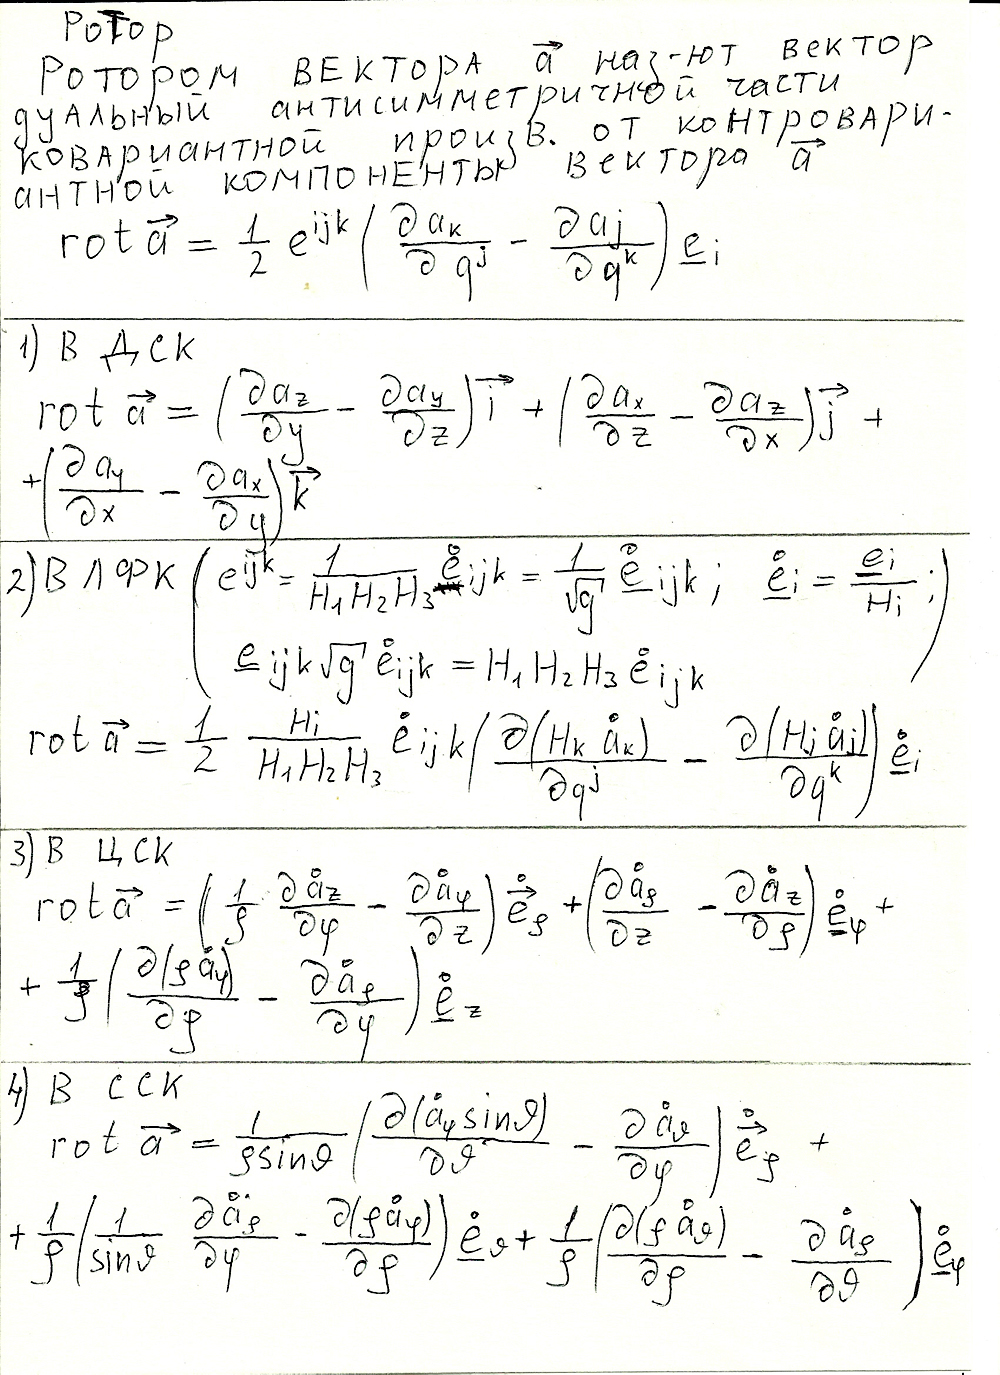 Ротор
Ротором вектора a⃗ наз-ют вектор
дуальный антисимметричной части
ковариантной произв. от контровари-
антной компоненты вектора a⃗
rot a⃗ = 1/2 e^{ijk} (∂a_k/∂q^j − ∂a_j/∂q^k) e̲_i
1) В ДСК
rot a⃗ = (∂a_z/∂y − ∂a_y/∂z) i⃗ + (∂a_x/∂z − ∂a_z/∂x) j⃗ +
+ (∂a_y/∂x − ∂a_x/∂y) k⃗
2) В ЛФК ( e^{ijk} = 1/(H₁H₂H₃) e̊_{ijk} = 1/√g e̲̊_{ijk} ; e̲̊_i = e̲_i/H_i ;
e̲_{ijk} √g e̊_{ijk} = H₁H₂H₃ e̊_{ijk} )
rot a⃗ = 1/2 H_i/(H₁H₂H₃) e̊_{ijk} (∂(H_k å_k)/∂q^j − ∂(H_j å_j)/∂q^k) e̲̊_i
3) В ЦСК
rot a⃗ = (1/ρ ∂å_z/∂φ − ∂å_φ/∂z) e⃗̊_ρ + (∂å_ρ/∂z − ∂å_z/∂ρ) e̲̊_φ +
+ 1/ρ (∂(ρå_φ)/∂ρ − ∂å_ρ/∂φ) e̲̊_z
4) В ССК
rot a⃗ = 1/(ρsinϑ) (∂(å_φ sinϑ)/∂ϑ − ∂å_ϑ/∂φ) e⃗̊_ρ +
+ 1/ρ (1/sinϑ ∂å_ρ/∂φ − ∂(ρå_φ)/∂ρ) e̲̊_ϑ + 1/ρ (∂(ρå_ϑ)/∂ρ − ∂å_ρ/∂ϑ) e̲̊_φ